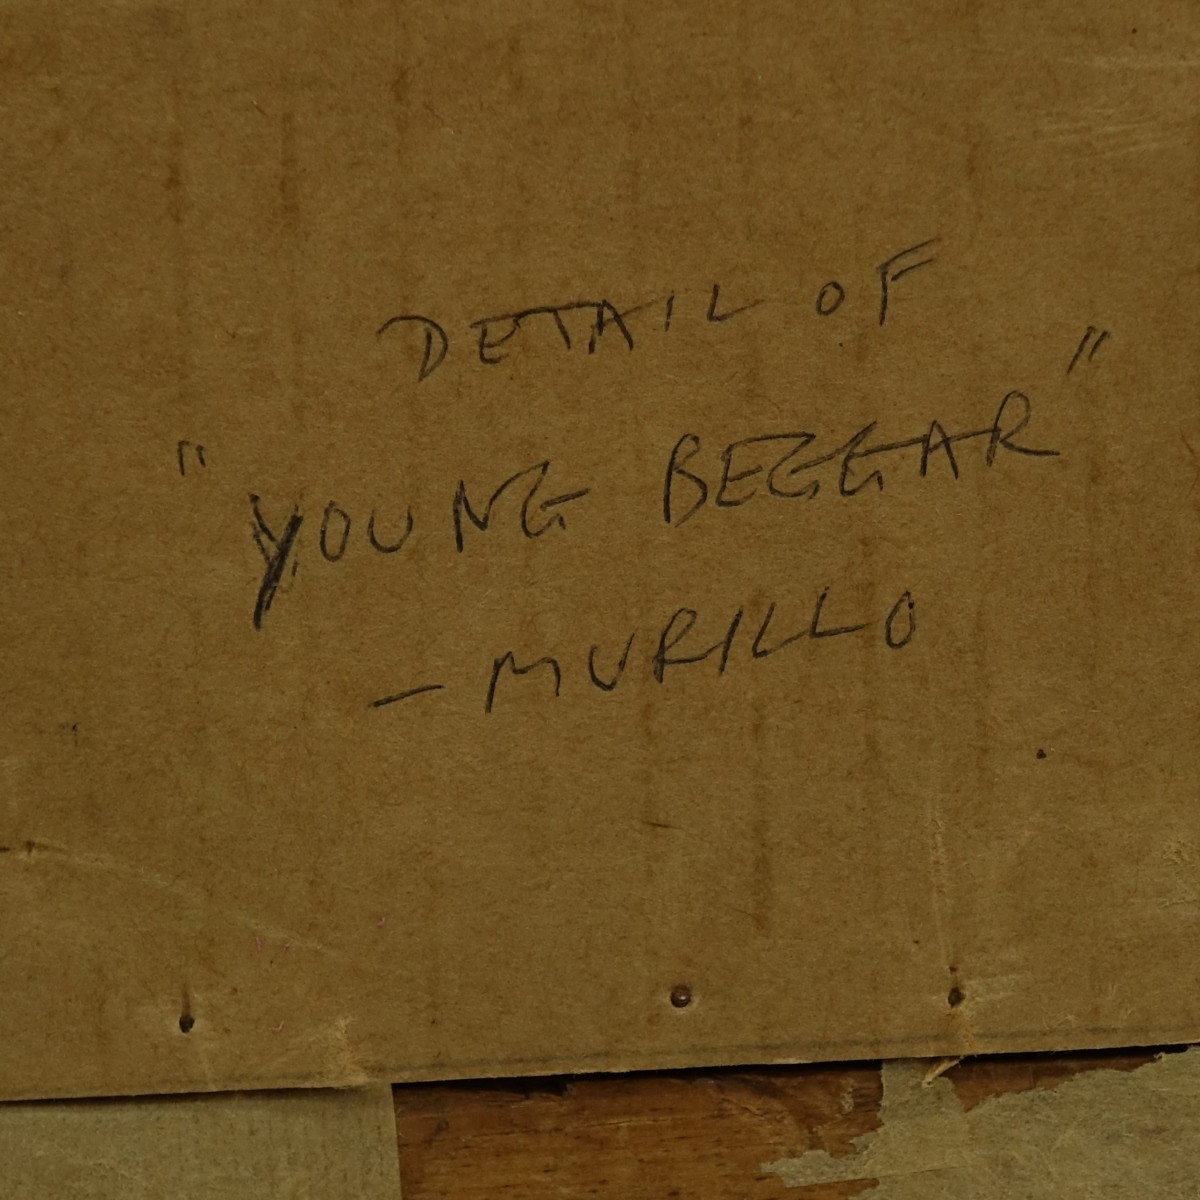 DETAIL OF
"YOUNG BEGGAR"
- MURILLO